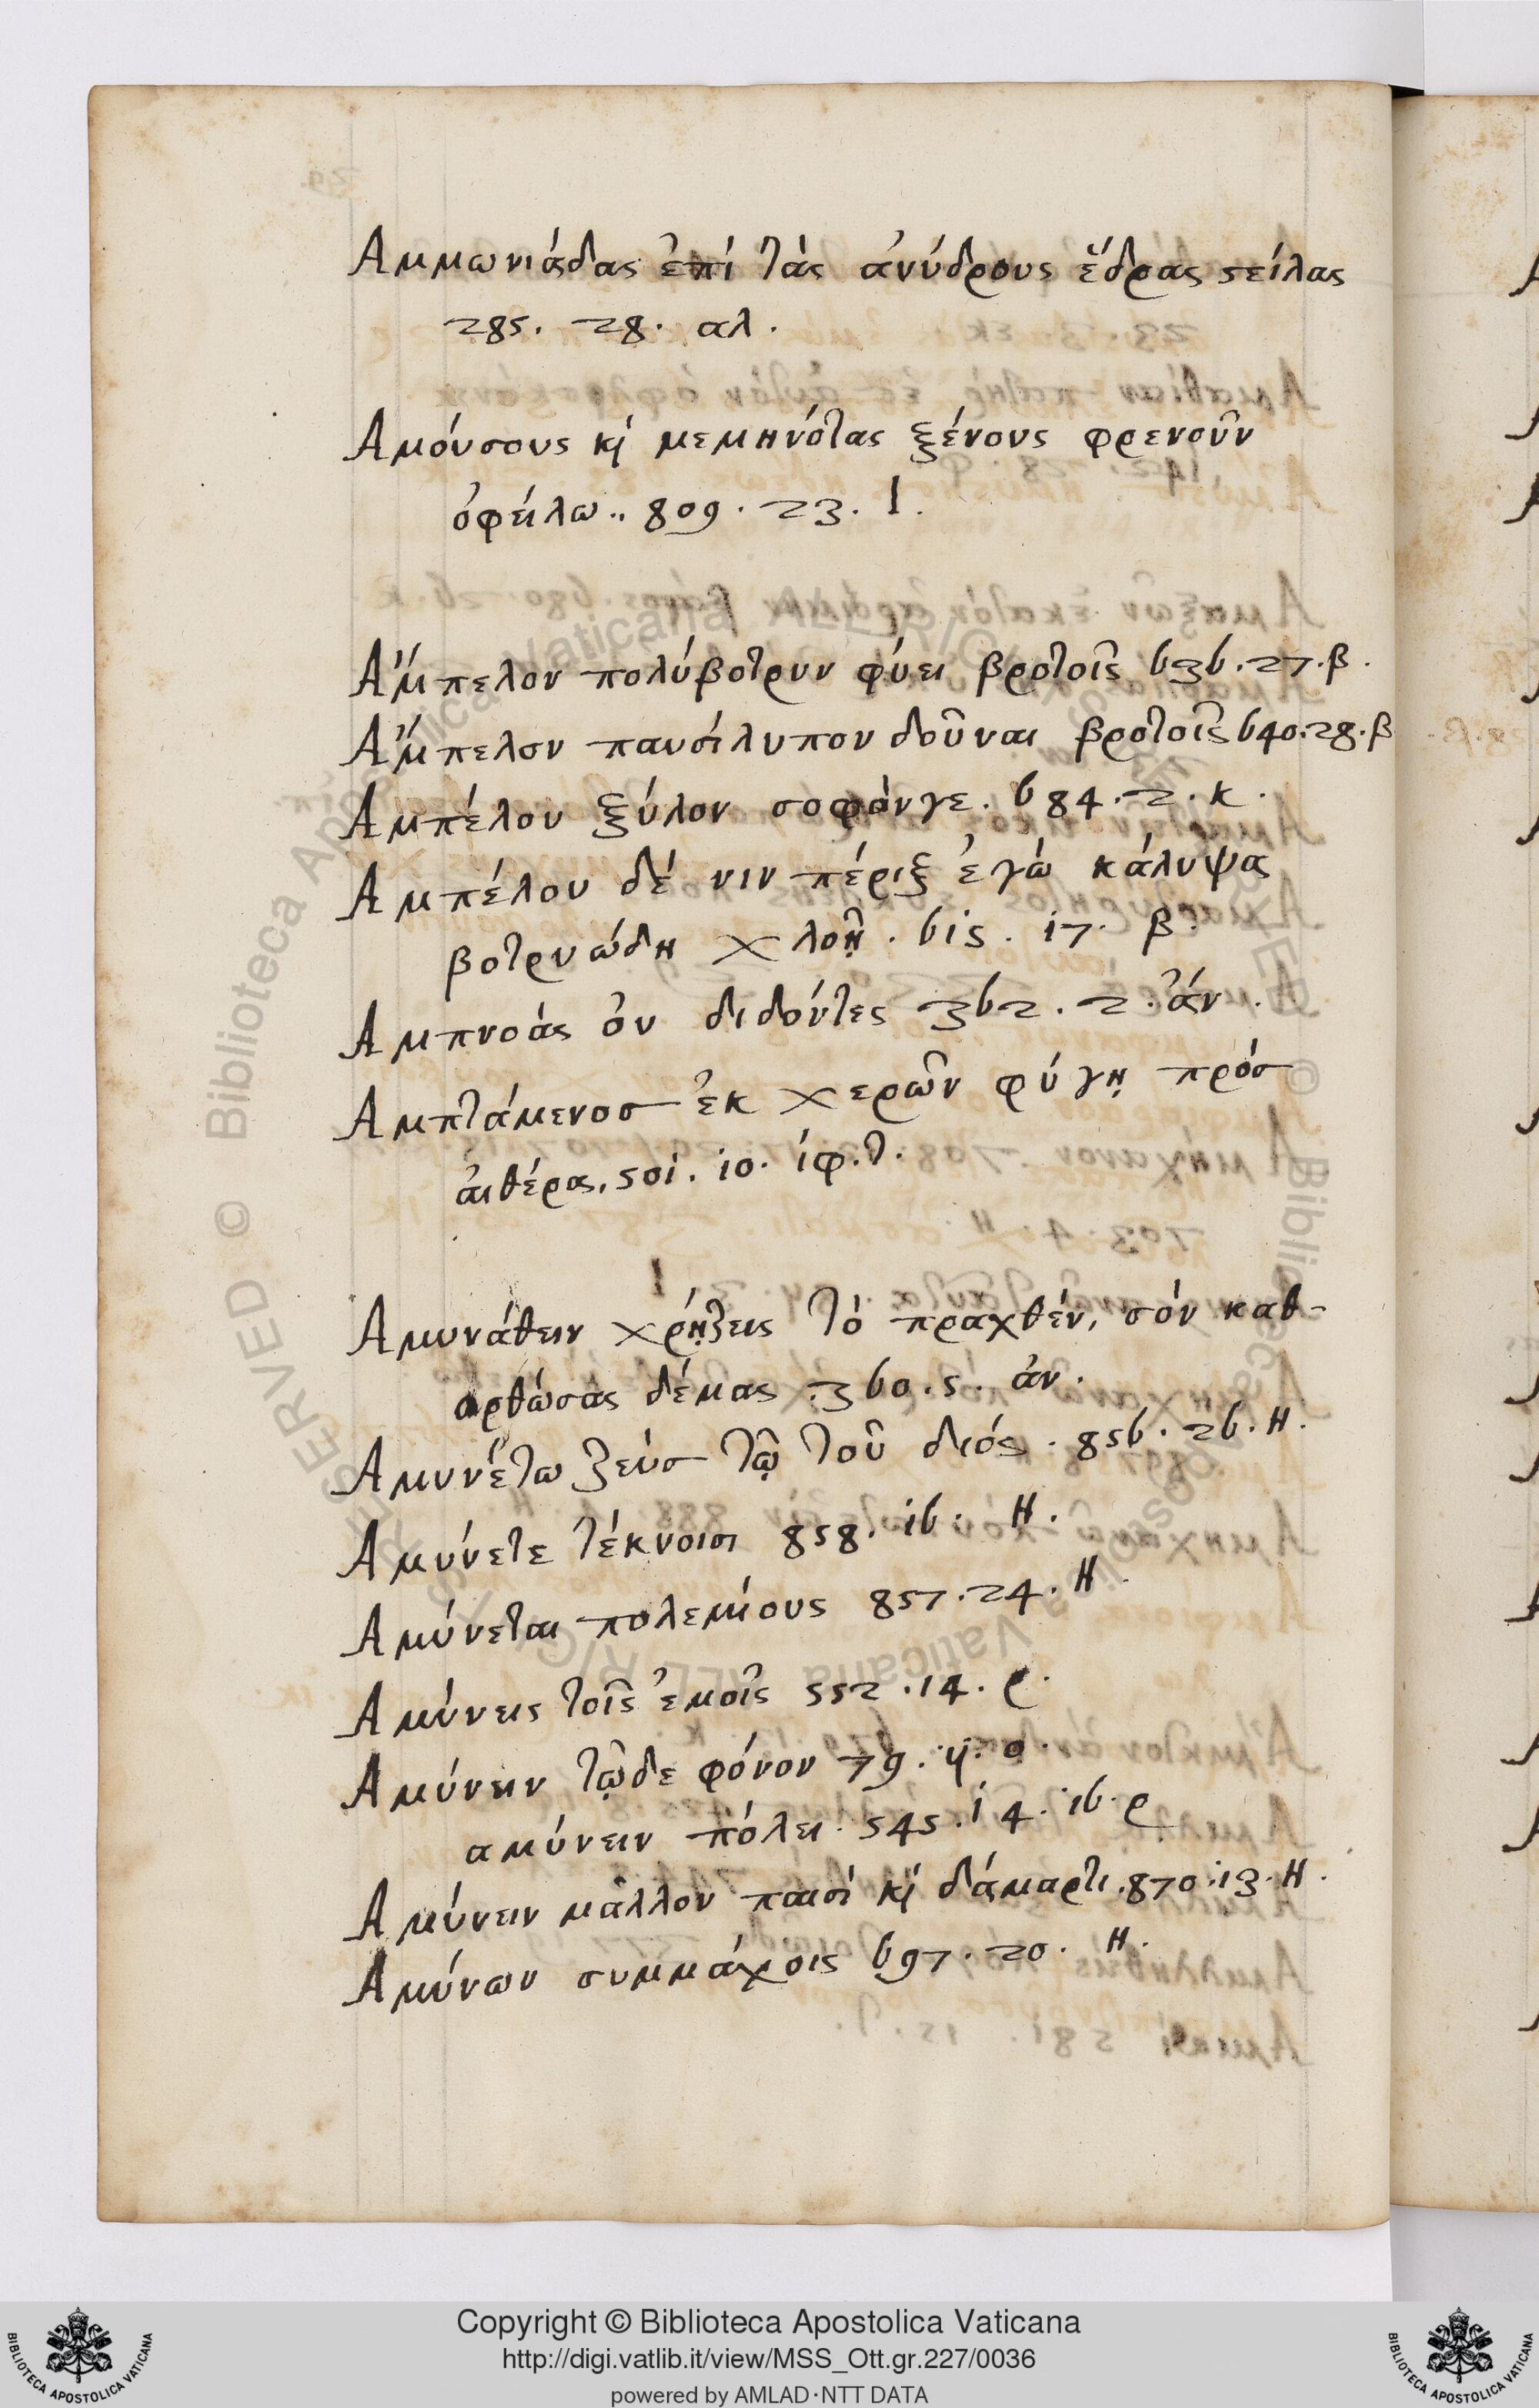 Αμμωνιάδας ἐπί τὰς ἀνύδρους ἕδρας ϛείλας
285. 28. αλ.
Αμούσους κὶ μεμηνότας ξένους φρενοῦν
ὀφείλω.. 809. 23. Ι.
Αἄμπελον πολύβοτρυν φύει βροτοῖς 636.27.β.
Αἄμπελον παυσίλυπον δοῦναι βροτοῖς 640.28.β
Αμπέλου ξύλον σοφόν γε. 684.2.κ.
Αμπέλου δέ νιν πέριξ ἐγὼ κάλυψα
βοτρυώδη χλοῇ. 615. 17. β.
Αμπνοάς ὀν διδόντες 362. 2. ἀν.
Αμπτάμενοσ ἐκ χερῶν φύγῃ πρόσ
ἀιθέρα. 501. 10. ἰφ.τ.
Αμυνάθειν χρῄζεις τὸ πραχθέν, σόν καθ-
ορθώσας δέμας 360.5. ἀν.
Αμυνέτω ζεύσ τῷ τοῦ διός. 856. 26. Η.
Αμύνετε τέκνοισι 858. 16. Η.
Αμύνεται πολεμίους 857. 24. Η.
Αμύνεις τοῖς ἐμοῖς 552. 14. ρ.
Αμύνειν τῷδε φόνον 79. 4. ο.
αμύνειν πόλει. 545. 14. 16. ρ
Αμύνειν μᾶλλον παισί κὶ δάμαρτι. 870. 13. Η.
Αμύνων συμμάχοις 697. 20. Η.
Copyright © Biblioteca Apostolica Vaticana
http://digi.vatlib.it/view/MSS_Ott.gr.227/0036
powered by AMLAD·NTT DATA